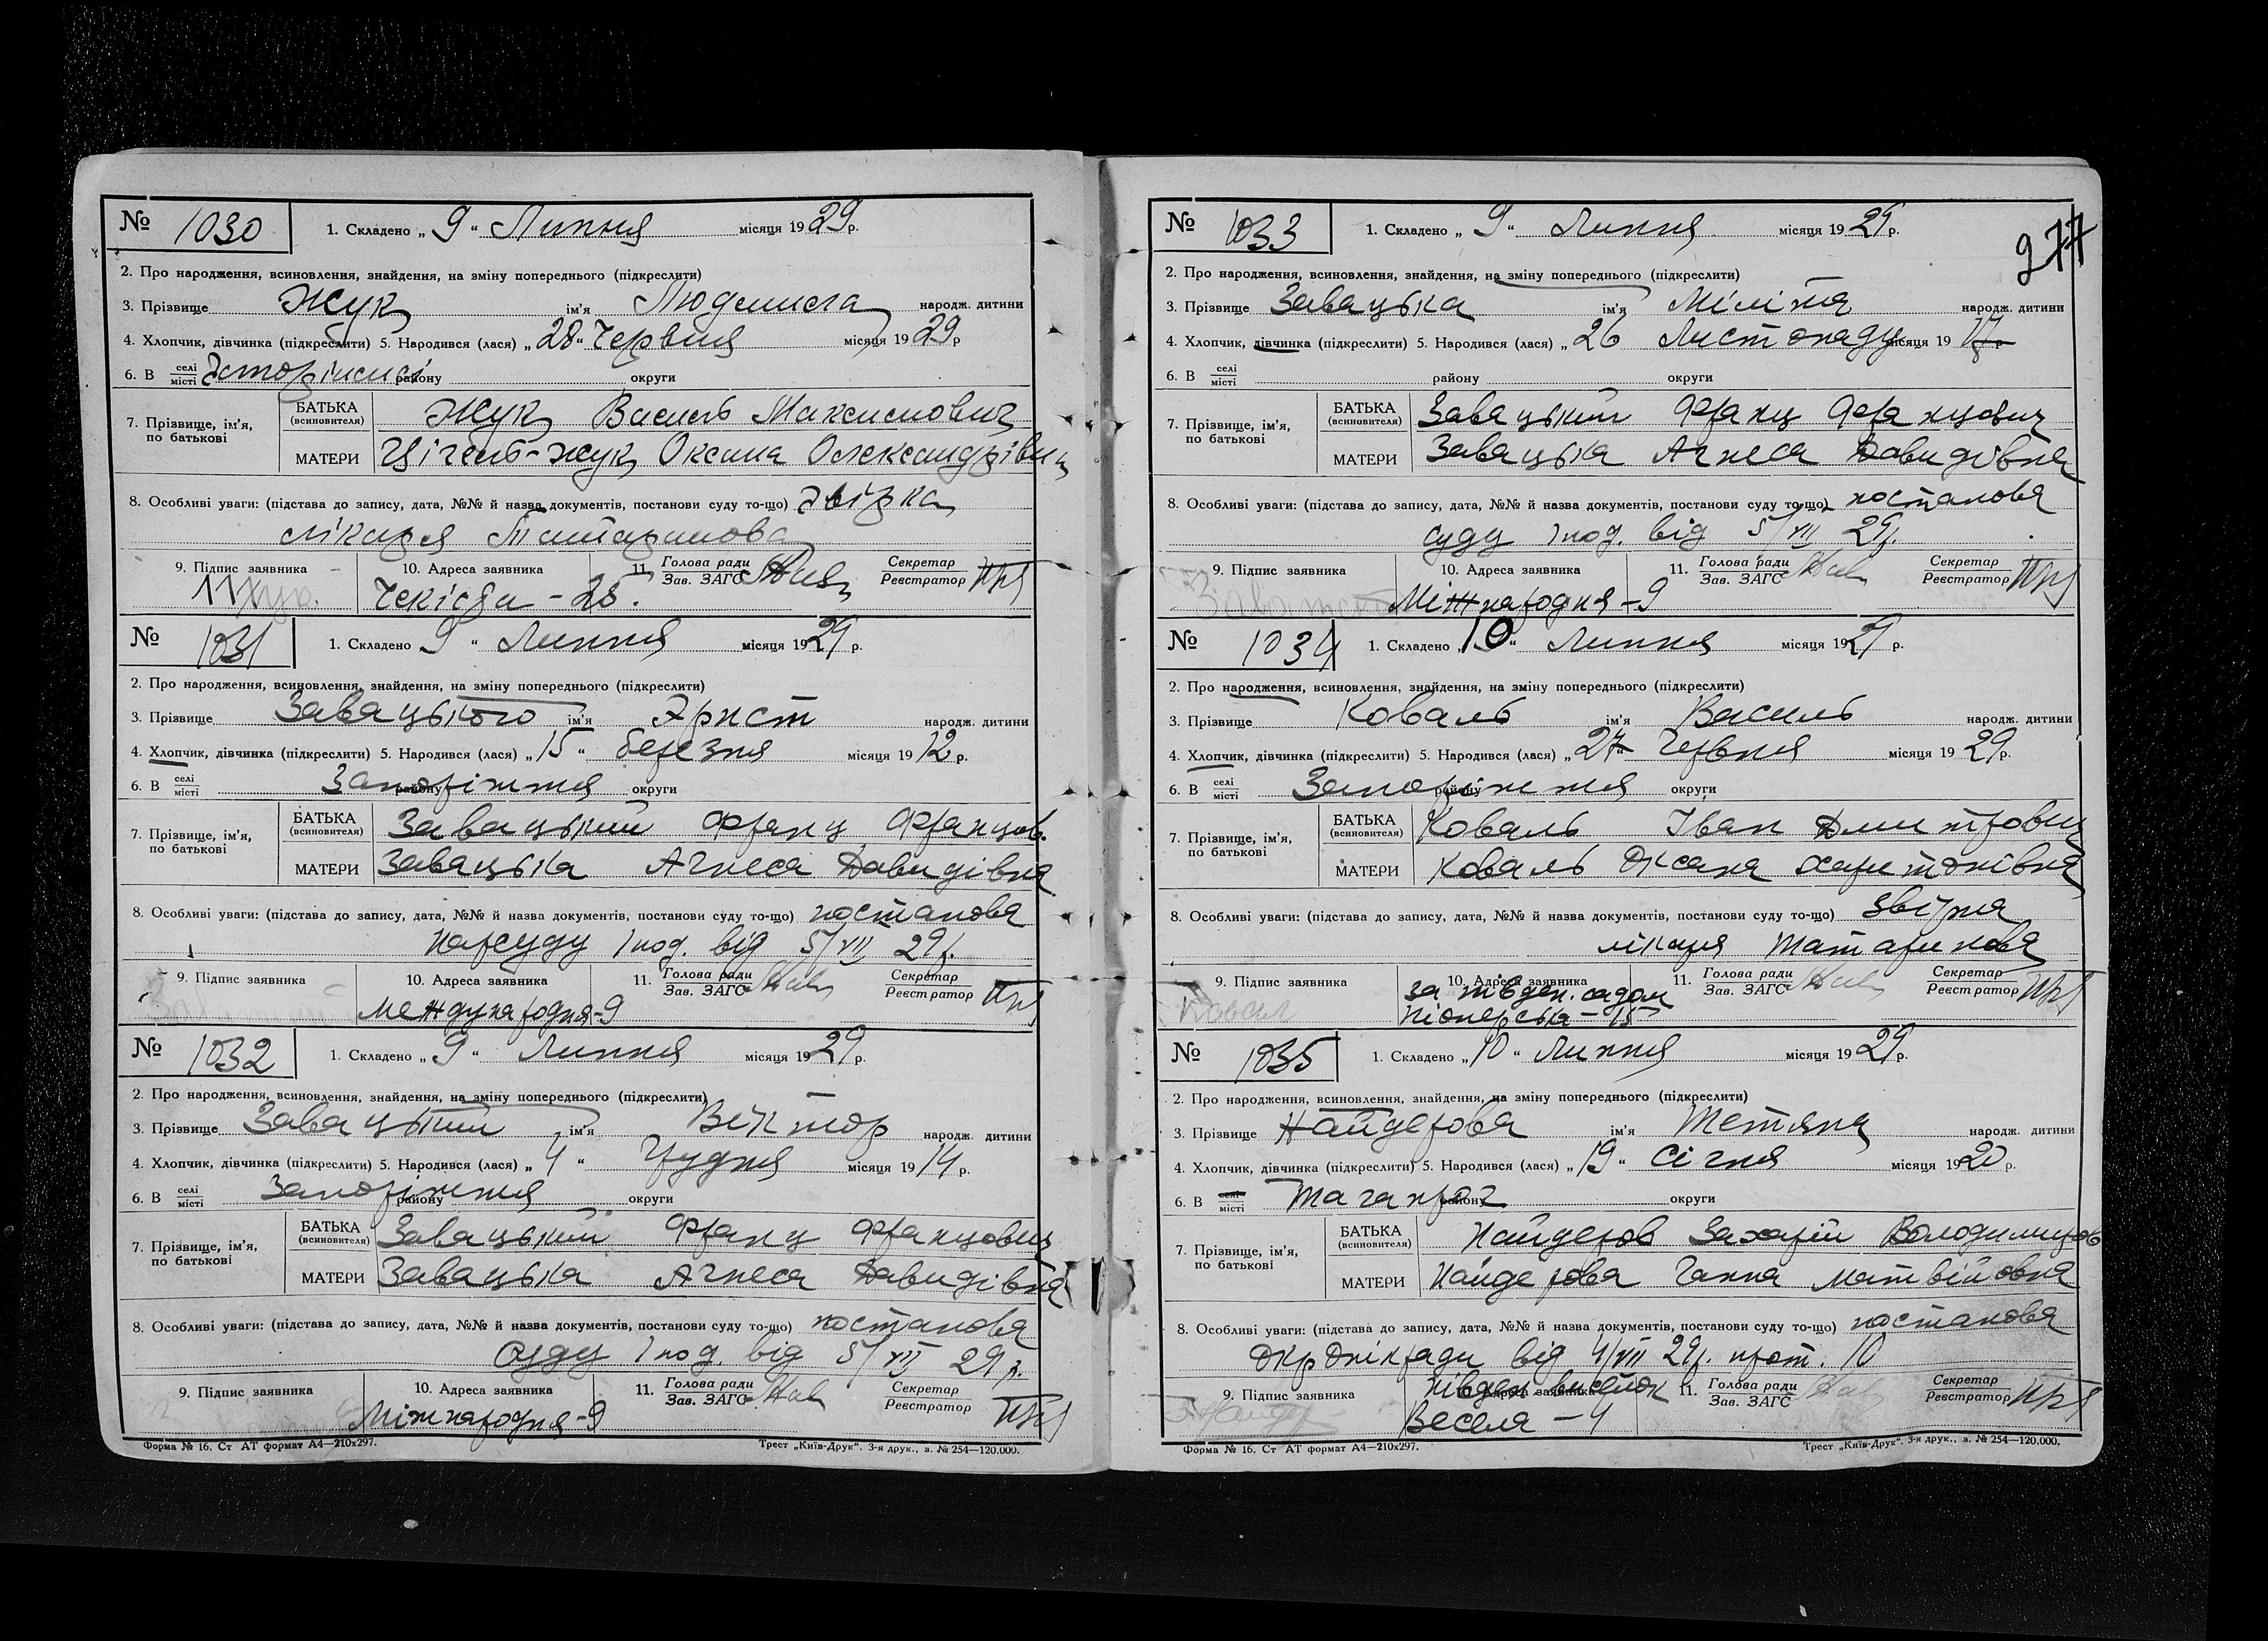 № 1030 1. Складено „ 9 “ Липня місяця 1929 р.
2. Про народження, всиновлення, знайдення, на зміну попереднього (підкреслити)
3. Прізвище Жук ім'я Людмила народж. дитини
4. Хлопчик, дівчинка (підкреслити) 5. Народився (лася) „ 28 “ Червня місяця 1929 р
6. В селі місті району округи
7. Прізвище, ім'я, по батькові БАТЬКА (всиновителя) Жук Василь Максимович
МАТЕРИ Оксана Олександрівна
8. Особливі уваги: (підстава до запису, дата, №№ й назва документів, постанови суду то-що) Звірка
лікаря Татаринова
9. Підпис заявника 10. Адреса заявника 11. Голова ради Зав. ЗАГС Секретар Реєстратор
Чекістів - 28.
№ 1031 1. Складено 9 “ Липня місяця 1929 р.
2. Про народження, всиновлення, знайдення, на зміну попереднього (підкреслити)
3. Прізвище Завацького ім'я Арист народж. дитини
4. Хлопчик, дівчинка (підкреслити) 5. Народився (лася) „ 15 “ березня місяця 1912 р.
6. В селі місті Запоріжжя району округи
7. Прізвище, ім'я, по батькові БАТЬКА (всиновителя) Завацький Франц Францов.
МАТЕРИ Завацька Агнеса Давидівна
8. Особливі уваги: (підстава до запису, дата, №№ й назва документів, постанови суду то-що) постанова
нарсуду 1 под. від 5/VII 29 р.
9. Підпис заявника 10. Адреса заявника 11. Голова ради Зав. ЗАГС Секретар Реєстратор
Междуннародня-9
№ 1032 1. Складено „ 9 “ Липня місяця 1929 р.
2. Про народження, всиновлення, знайдення, на зміну попереднього (підкреслити)
3. Прізвище Завацький ім'я Віктор народж. дитини
4. Хлопчик, дівчинка (підкреслити) 5. Народився (лася) „ 4 “ Грудня місяця 1914 р.
6. В селі місті Запоріжжя району округи
7. Прізвище, ім'я, по батькові БАТЬКА (всиновителя) Завацький Франц Францович
МАТЕРИ Завацька Агнеса Давидівна
8. Особливі уваги: (підстава до запису, дата, №№ й назва документів, постанови суду то-що) постанова
суду 1 под. від 5/VII 29 р.
9. Підпис заявника 10. Адреса заявника 11. Голова ради Зав. ЗАГС Секретар Реєстратор
Міжнародня-9
Форма № 16. Ст АТ формат А4—210х297. Трест „Київ-Друк“. 3-я друк., з. № 254—120.000.
277
№ 1033 1. Складено „ 9 “ Липня місяця 1929 р.
2. Про народження, всиновлення, знайдення, на зміну попереднього (підкреслити)
3. Прізвище Завацька ім'я народж. дитини
4. Хлопчик, дівчинка (підкреслити) 5. Народився (лася) „ 26 Листопаду місяця 19 17 р
6. В селі місті району округи
7. Прізвище, ім'я, по батькові БАТЬКА (всиновителя) Завацький Франц Францович
МАТЕРИ Завацька Агнеса Давидівна
8. Особливі уваги: (підстава до запису, дата, №№ й назва документів, постанови суду то-що) постанова
суду 1 под. від 5/VII 29 р.
9. Підпис заявника 10. Адреса заявника 11. Голова ради Зав. ЗАГС Секретар Реєстратор
Міжнародня-9
№ 1034 1. Складено „ 10 “ Липня місяця 1929 р.
2. Про народження, всиновлення, знайдення, на зміну попереднього (підкреслити)
3. Прізвище Коваль ім'я Василь народж. дитини
4. Хлопчик, дівчинка (підкреслити) 5. Народився (лася) „ 27 “ Червня місяця 1929 р.
6. В селі місті Запоріжжя району округи
7. Прізвище, ім'я, по батькові БАТЬКА (всиновителя) Коваль Іван Дмитрович
МАТЕРИ Коваль Оксана Харитонівна
8. Особливі уваги: (підстава до запису, дата, №№ й назва документів, постанови суду то-що) Звірка
лікаря Татаринова
9. Підпис заявника 10. Адреса заявника 11. Голова ради Зав. ЗАГС Секретар Реєстратор
за півден. садом
Піонерська - 15
№ 1035 1. Складено „ 10 “ Липня місяця 1929 р.
2. Про народження, всиновлення, знайдення, на зміну попереднього (підкреслити)
3. Прізвище Найдерова ім'я Тетяна народж. дитини
4. Хлопчик, дівчинка (підкреслити) 5. Народився (лася) „ 19 “ Січня місяця 1920 р.
6. В селі місті Таганрог району округи
7. Прізвище, ім'я, по батькові БАТЬКА (всиновителя) Найдеров Захарій Володимиров
МАТЕРИ Найдерова Ганна Матвійовна
8. Особливі уваги: (підстава до запису, дата, №№ й назва документів, постанови суду то-що) постанова
від 4/VII 29 р. прот. 10
9. Підпис заявника 10. Адреса заявника 11. Голова ради Зав. ЗАГС Секретар Реєстратор
півден виселок
Весела - 4
Форма № 16. Ст АТ формат А4—210х297. Трест „Київ-Друк“. 3-я друк., з. № 254—120.000.